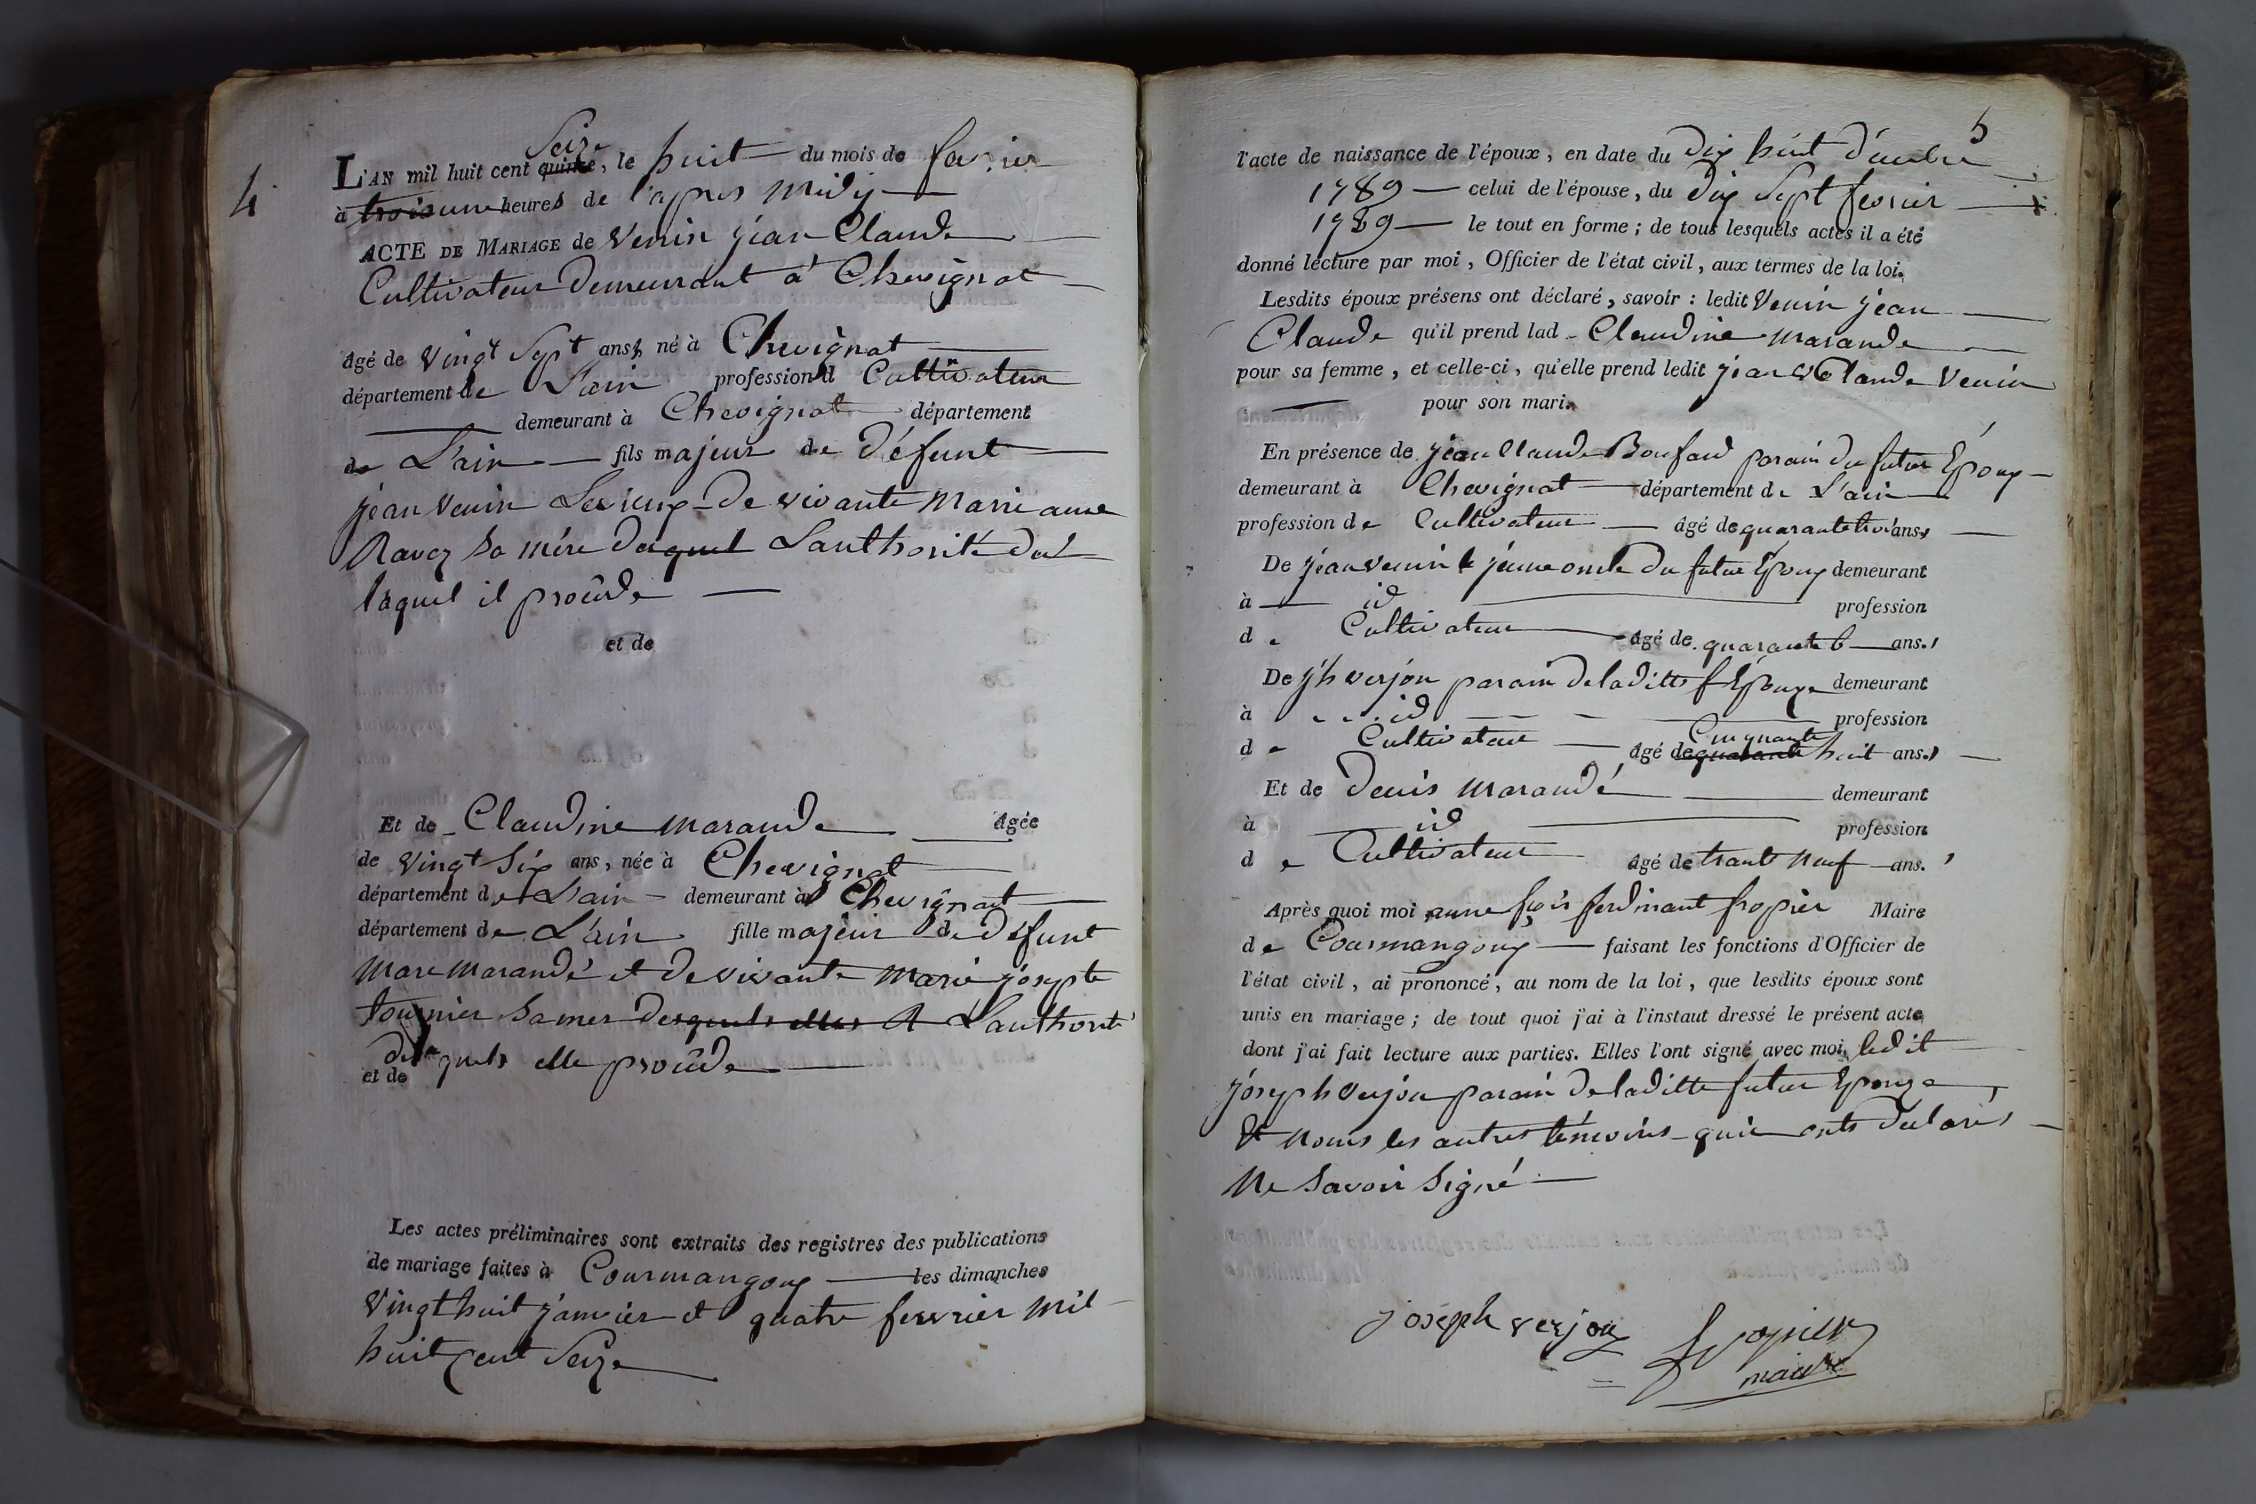 4
L'AN mil huit cent quinze Seize, le huit du mois de
à trois une heures de l'apres midy
ACTE DE MARIAGE de Venin jean Claude
Cultivateur demeurant à Chevignat
âgé de vingt Sept ans, né à Chevignat
département de L'ain profession d Cultivateur
demeurant à Chevignat département
de L'ain fils majeur de défunt
jean Venin Le vieux de vivante Marie anne
Ravez sa mère L'authorité
laquel il procède
et de
Et de Claudine Marande âgée
de vingt Six ans, née à Chevignat
département de L'ain demeurant à Chevignat
département de L'ain fille majeur de défunt
Marc Marandé et de vivante Marie josepte
tournier sa mer desquels elles L'authorité
desquels elle procède
et de
Les actes préliminaires sont extraits des registres des publications
de mariage faites à Courmangoux les dimanches
vingt huit janvier et quatre fevvrier mil
huit cent Seize
5
l'acte de naissance de l'époux, en date du dix huit
1789 celui de l'épouse, du dix Sept fevrier
1789 le tout en forme ; de tous lesquels actes il a été
donné lecture par moi, Officier de l'état civil, aux termes de la loi.
Lesdits époux présens ont déclaré, savoir : ledit Venin jean
Claude qu'il prend lad Claudine Marande
pour sa femme, et celle-ci, qu'elle prend ledit jean Claude Venin
pour son mari.
En présence de jean Claude Boufard parain du futur Époux
demeurant à Chevignat département de L'ain
profession de Cultivateur âgé de quarante trois ans,
De jean venin le jeune oncle du futur Époux demeurant
à id profession
de Cultivateur âgé de quarante 6 ans.
De jh verjon parain de laditte f Épouze demeurant
à id profession
de Cultivateur âgé de quarante Cinquante huit ans.
Et de Denis Marandé demeurant
à id profession
de Cultivateur âgé de trante neuf ans.
Après quoi moi anne ferdinant fropier Maire
de Courmangoux faisant les fonctions d'Officier de
l'état civil, ai prononcé, au nom de la loi, que lesdits époux sont
unis en mariage ; de tout quoi j'ai à l'instaut dressé le présent acte
dont j'ai fait lecture aux parties. Elles l'ont signé avec moi, ledit
joseph Verjon parain de laditte futur Epouze
Et nonus les autres témoins qui onts déclarés
Ne savoir signé
joseph verjon
fropier
maire